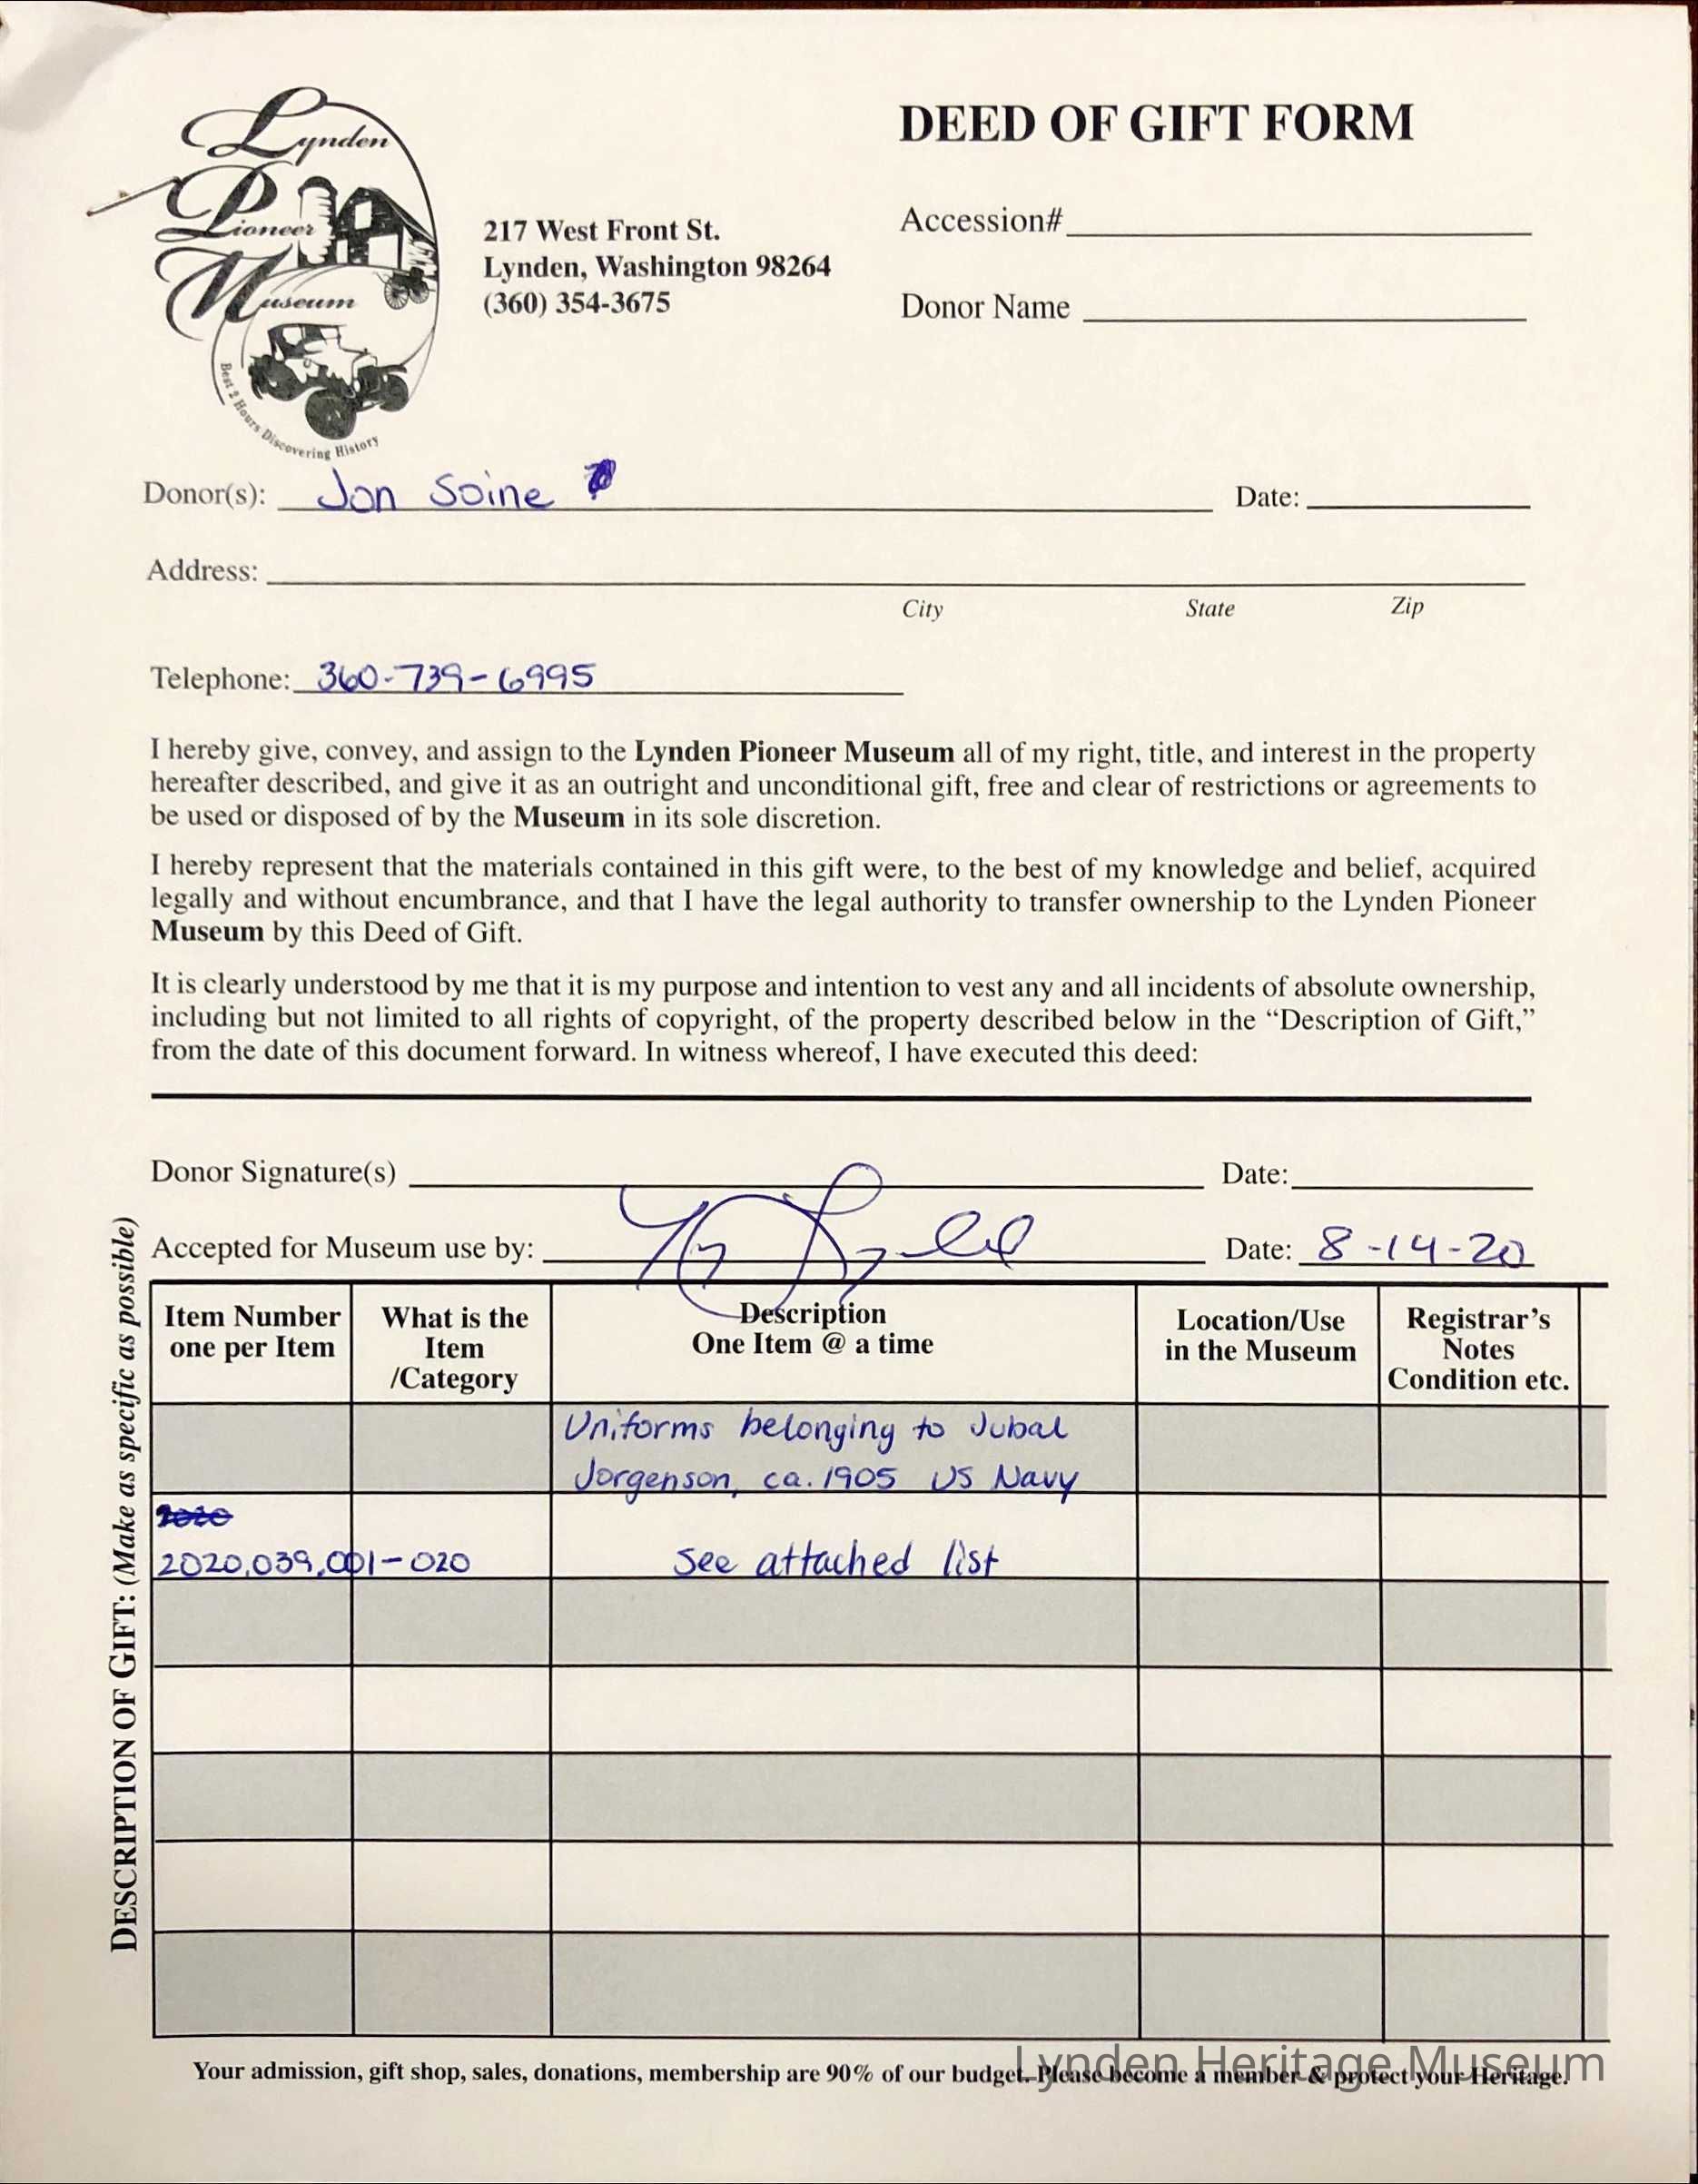 Lynden
Pioneer
Museum
Best 2 Hours Discovering History
217 West Front St.
Lynden, Washington 98264
(360) 354-3675
DEED OF GIFT FORM
Accession#
Donor Name
Donor(s): Jon Soine
Date:
Address:
City State Zip
Telephone: 360-739-6995
I hereby give, convey, and assign to the Lynden Pioneer Museum all of my right, title, and interest in the property
hereafter described, and give it as an outright and unconditional gift, free and clear of restrictions or agreements to
be used or disposed of by the Museum in its sole discretion.
I hereby represent that the materials contained in this gift were, to the best of my knowledge and belief, acquired
legally and without encumbrance, and that I have the legal authority to transfer ownership to the Lynden Pioneer
Museum by this Deed of Gift.
It is clearly understood by me that it is my purpose and intention to vest any and all incidents of absolute ownership,
including but not limited to all rights of copyright, of the property described below in the “Description of Gift,”
from the date of this document forward. In witness whereof, I have executed this deed:
Donor Signature(s) Date:
Accepted for Museum use by: Date: 8-14-20
DESCRIPTION OF GIFT: (Make as specific as possible)
Item Number
one per Item
What is the
Item
/Category
Description
One Item @ a time
Location/Use
in the Museum
Registrar’s
Notes
Condition etc.
Uniforms belonging to Jubal
Jorgenson, ca. 1905 US Navy
2020
2020.039.001-020 See attached list
Your admission, gift shop, sales, donations, membership are 90% of our budget. Please become a member & protect your Heritage.
Lynden Heritage Museum